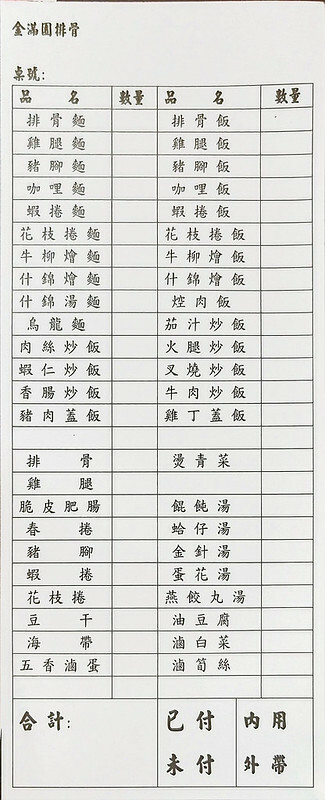 金滿圓排骨
桌號:
品名 數量 品名 數量
排骨麵 排骨飯
雞腿麵 雞腿飯
豬腳麵 豬腳飯
咖哩麵 咖哩飯
蝦捲麵 蝦捲飯
花枝捲麵 花枝捲飯
牛柳燴麵 牛柳燴飯
什錦燴麵 什錦燴飯
什錦湯麵 焢肉飯
烏龍麵 茄汁炒飯
肉絲炒飯 火腿炒飯
蝦仁炒飯 叉燒炒飯
香腸炒飯 牛肉炒飯
豬肉蓋飯 雞丁蓋飯
排骨 燙青菜
雞腿
脆皮肥腸 餛飩湯
春捲 蛤仔湯
豬腳 金針湯
蝦捲 蛋花湯
花枝捲 燕餃丸湯
豆干 油豆腐
海帶 滷白菜
五香滷蛋 滷筍絲
合計: 已付 內用
未付 外帶